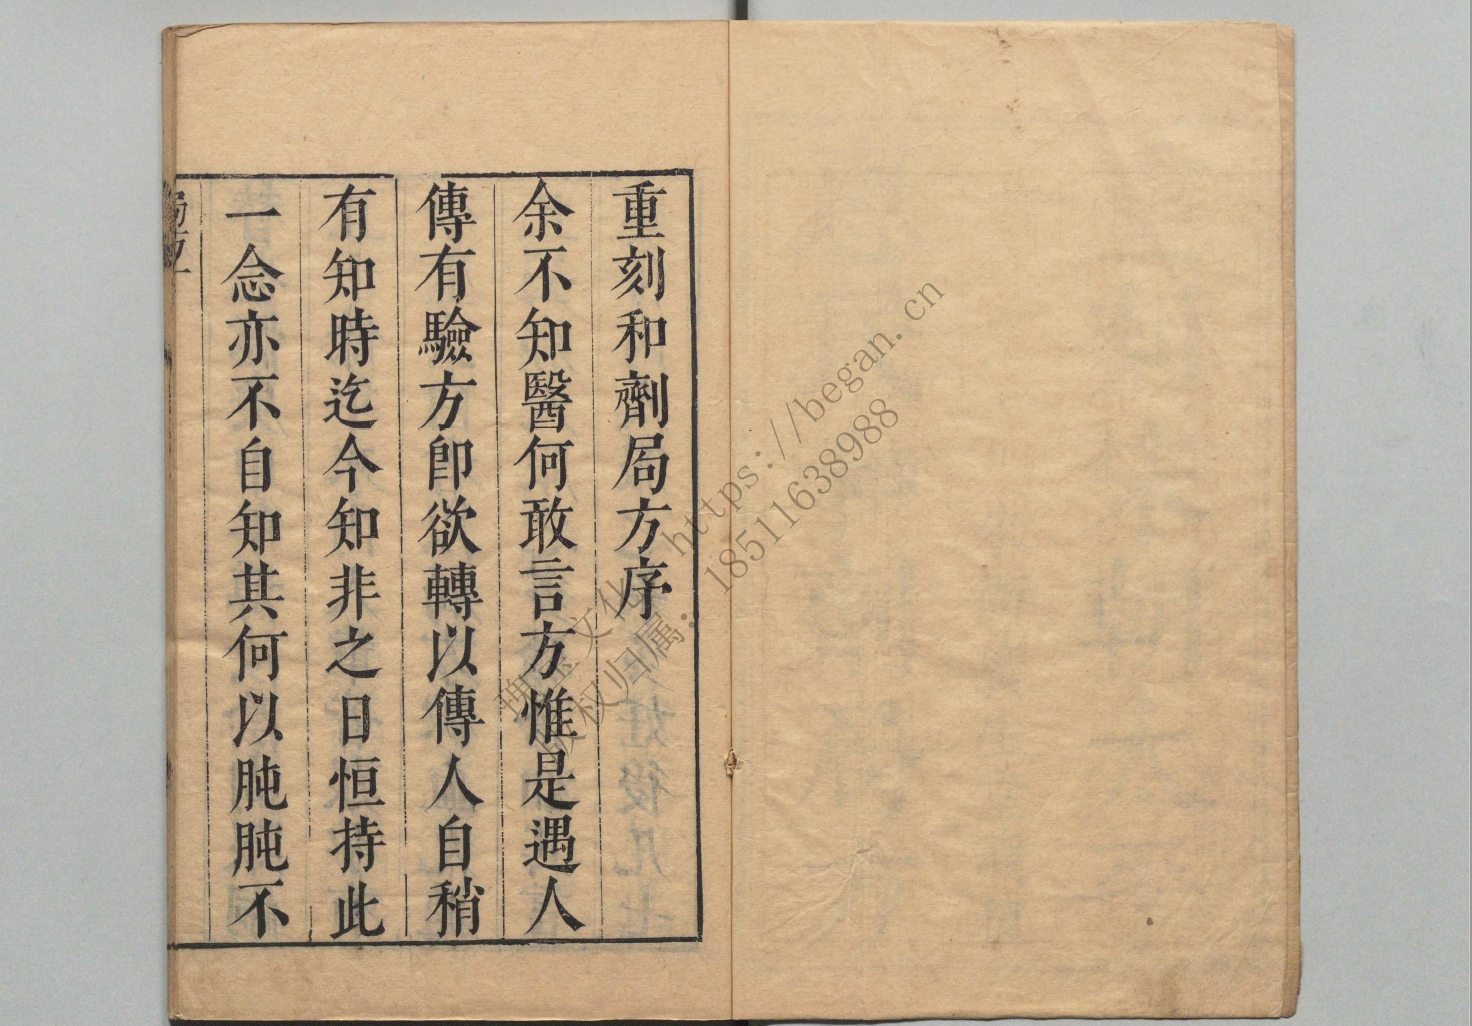 重刻和劑局方序
余不知醫何敢言方惟是遇人
傳有驗方卽欲轉以傳人自稍
有知時迄今知非之日恒持此
一念亦不自知其何以肫肫不
局方
https://began.cn
权归属：18511638988